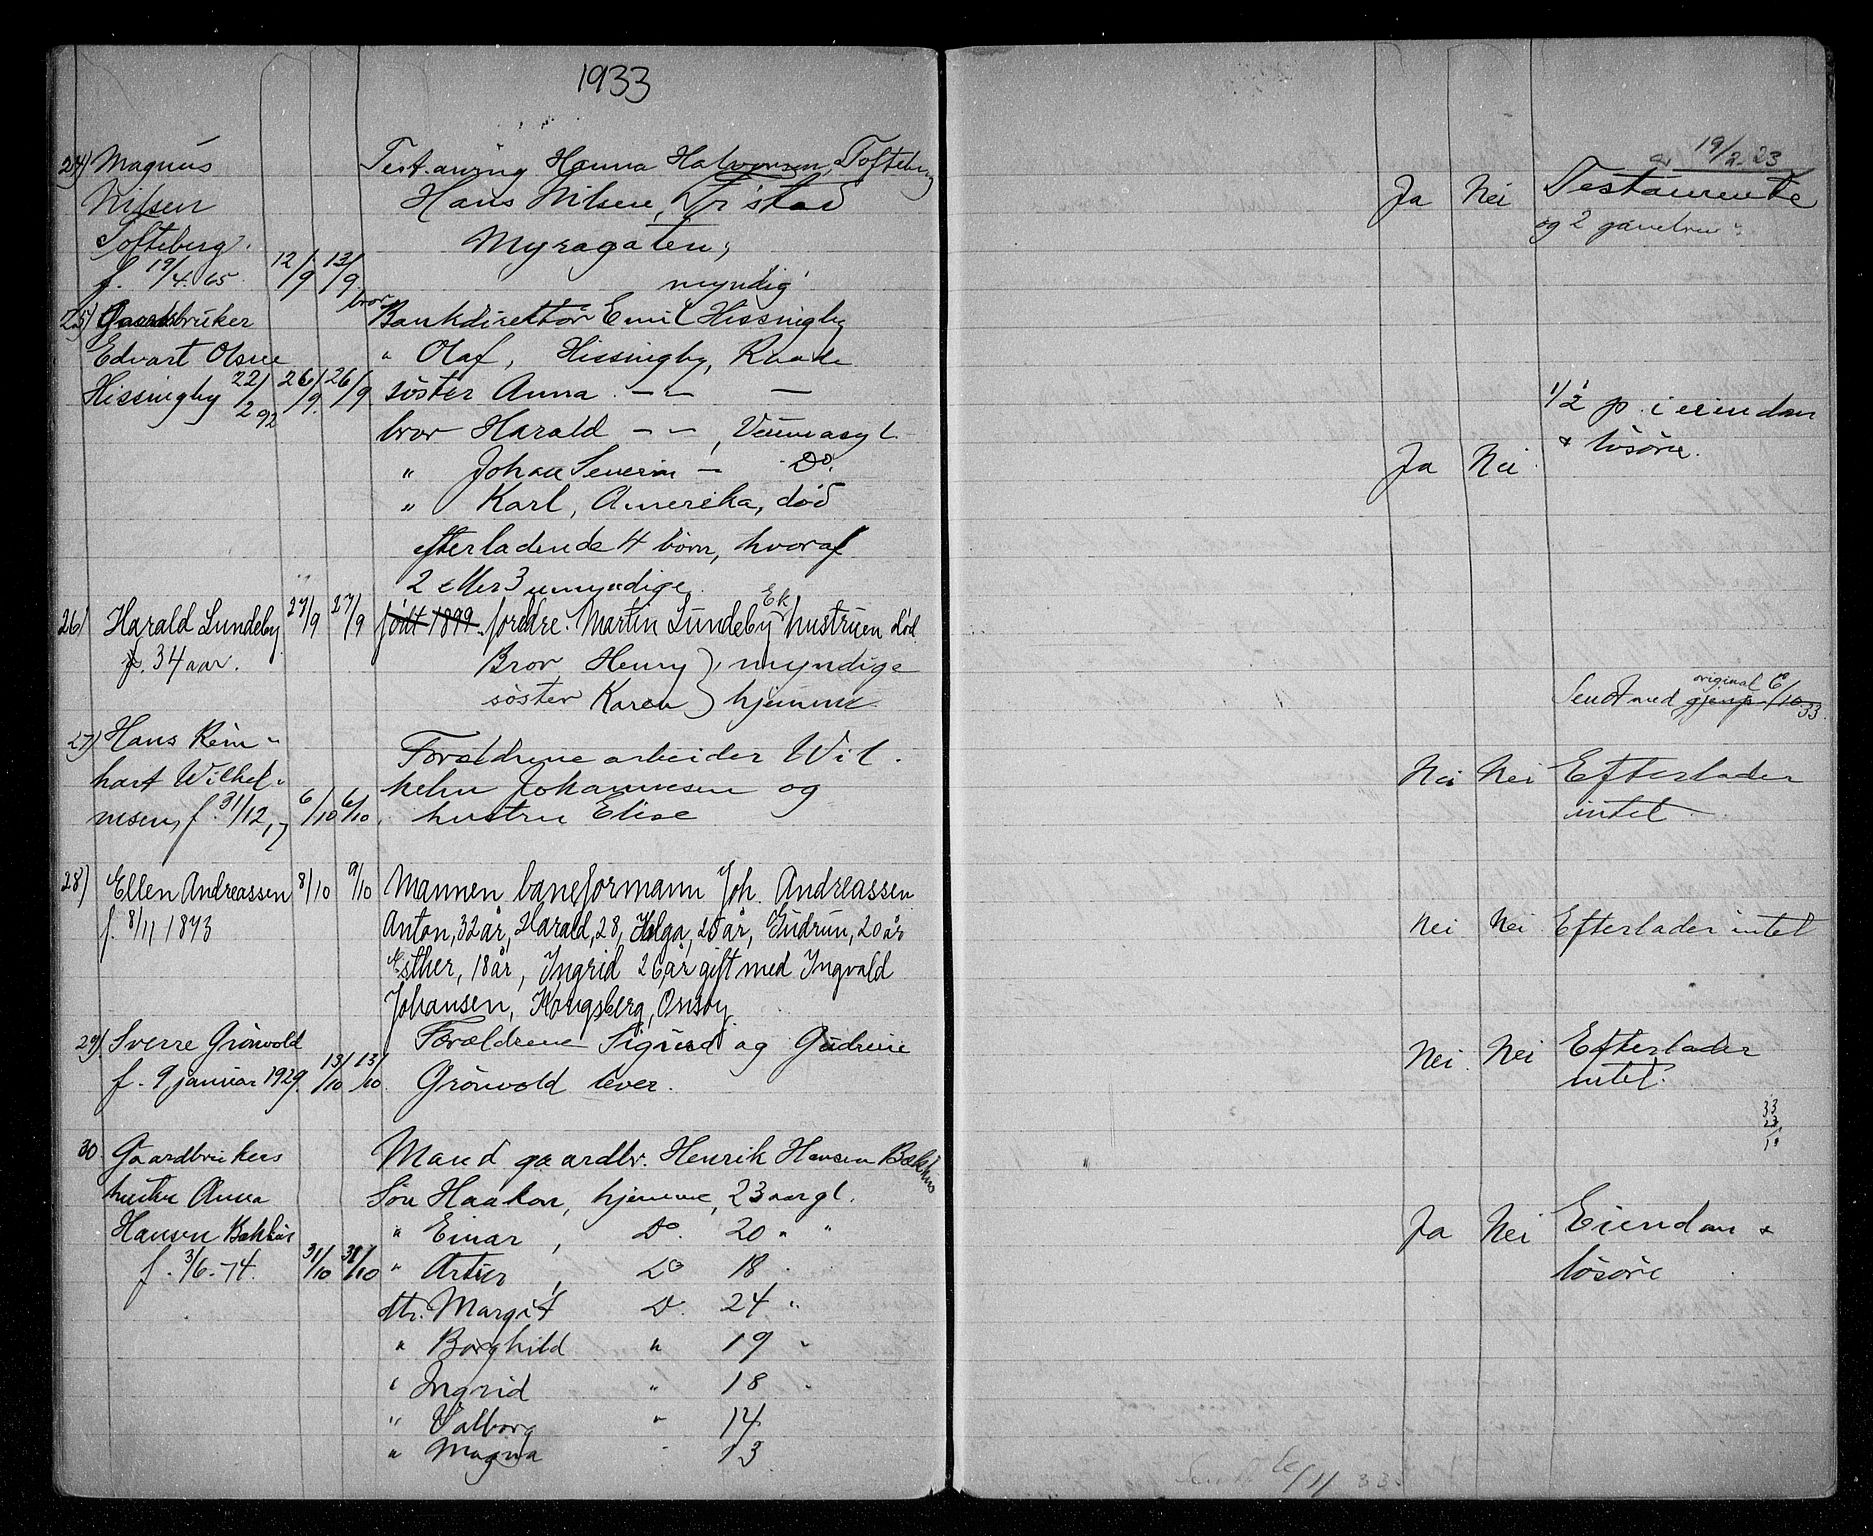 1933
24) Magnus
Nilsen
Tofteberg.
f. 19/4. 65. 12/9 13/9.
Test.arving Hanna Halvorsen, Tofteberg
Hans Nilsen,
Myragaten;
myndig
Ja Nei Testamente av 19/2 23
og 2
25) Gaardbruker
Edvart Olsen
Hissingby 22/2 92 26/9. 26/9
bror Bankdirektör Emil Hissingby
" Olaf, Hissingby, Raade
söster Anna — —
bror Harald — — ,
" Johan Severin — Do.
" Karl, Amerika, död
efterladende 4 börn, hvoraf
2 eller 3 umyndige
Ja Nei. 1/2 p. i eiendom
& lösöre.
26) Harald Lundeby 27/9 27/9
f. 34 aar.
födt 1899. foreldre. Martin Lundeby Ek hustruen död
Bror Henry ), myndige
söster Karen ) hjemme
Sendt med gjenp original 6/10 33.
27) Hans Rein-
hart Wilhel-
msen, f. 31/12, 17 6/10 6/10.
Forældrene arbeider Wil.
helm Johannesen og
hustru Elise
Nei Nei Efterlader
intet.
28) Ellen Andreassen 8/10 9/10
f. 8/11 1873
Mannen baneformann Joh. Andreassen
Anton, 32 år, Harald, 28, Helga, 25 år, Gudrun, 20 år
Esther, 18 år, Ingrid 26 år gift med Ingvald
Johansen, Kongsberg, Onsöy.
Nei Nei Efterlader intet
29) Sverre Grönvold
f. 9 januar 1929. 13/10 13/10.
Forældrene Sigurd og Gudrune
Grönvold lever.
Nei. Nei Efterlader
intet.
33
23
10
30. Gaardbrukers
hustru Anna
Hansen Bakkhus
f. 3/6-74. 31/10 31/10
Mand gaardbr. Henrik Hansen Bakkhus
Sön Haakon, hjemme, 23 aar gl.
" Einar, Do. 20 " "
" Artur, Do 18 "
dtr. Margit D. 24 "
" Borghild " 19 "
" Ingrid " 18 "
" Valborg " 14
" Magna " 13
Ja Nei Eiendom &
lösöre
Sendt 6/11 33.